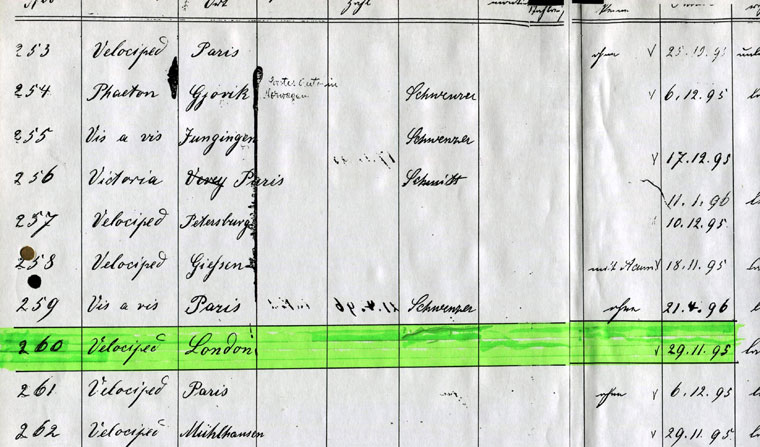 253 Velociped Paris ohne V 25.10.95
254 Phaeton Gjovik Norwegen Schwenzer V 6.12.95
255 Vis a vis Jungingen Schwenzer V 17.12.95
256 Victoria Paris Schmitt 11.1.96
257 Velociped Petersburg 10.12.95
258 Velociped Giessen mit Acum V 18.11.95
259 Vis a vis Paris Schwenzer ohne 21.4.96
260 Velociped London V 29.11.95
261 Velociped Paris ohne V 6.12.95
262 Velociped Mühlhausen V 29.11.95